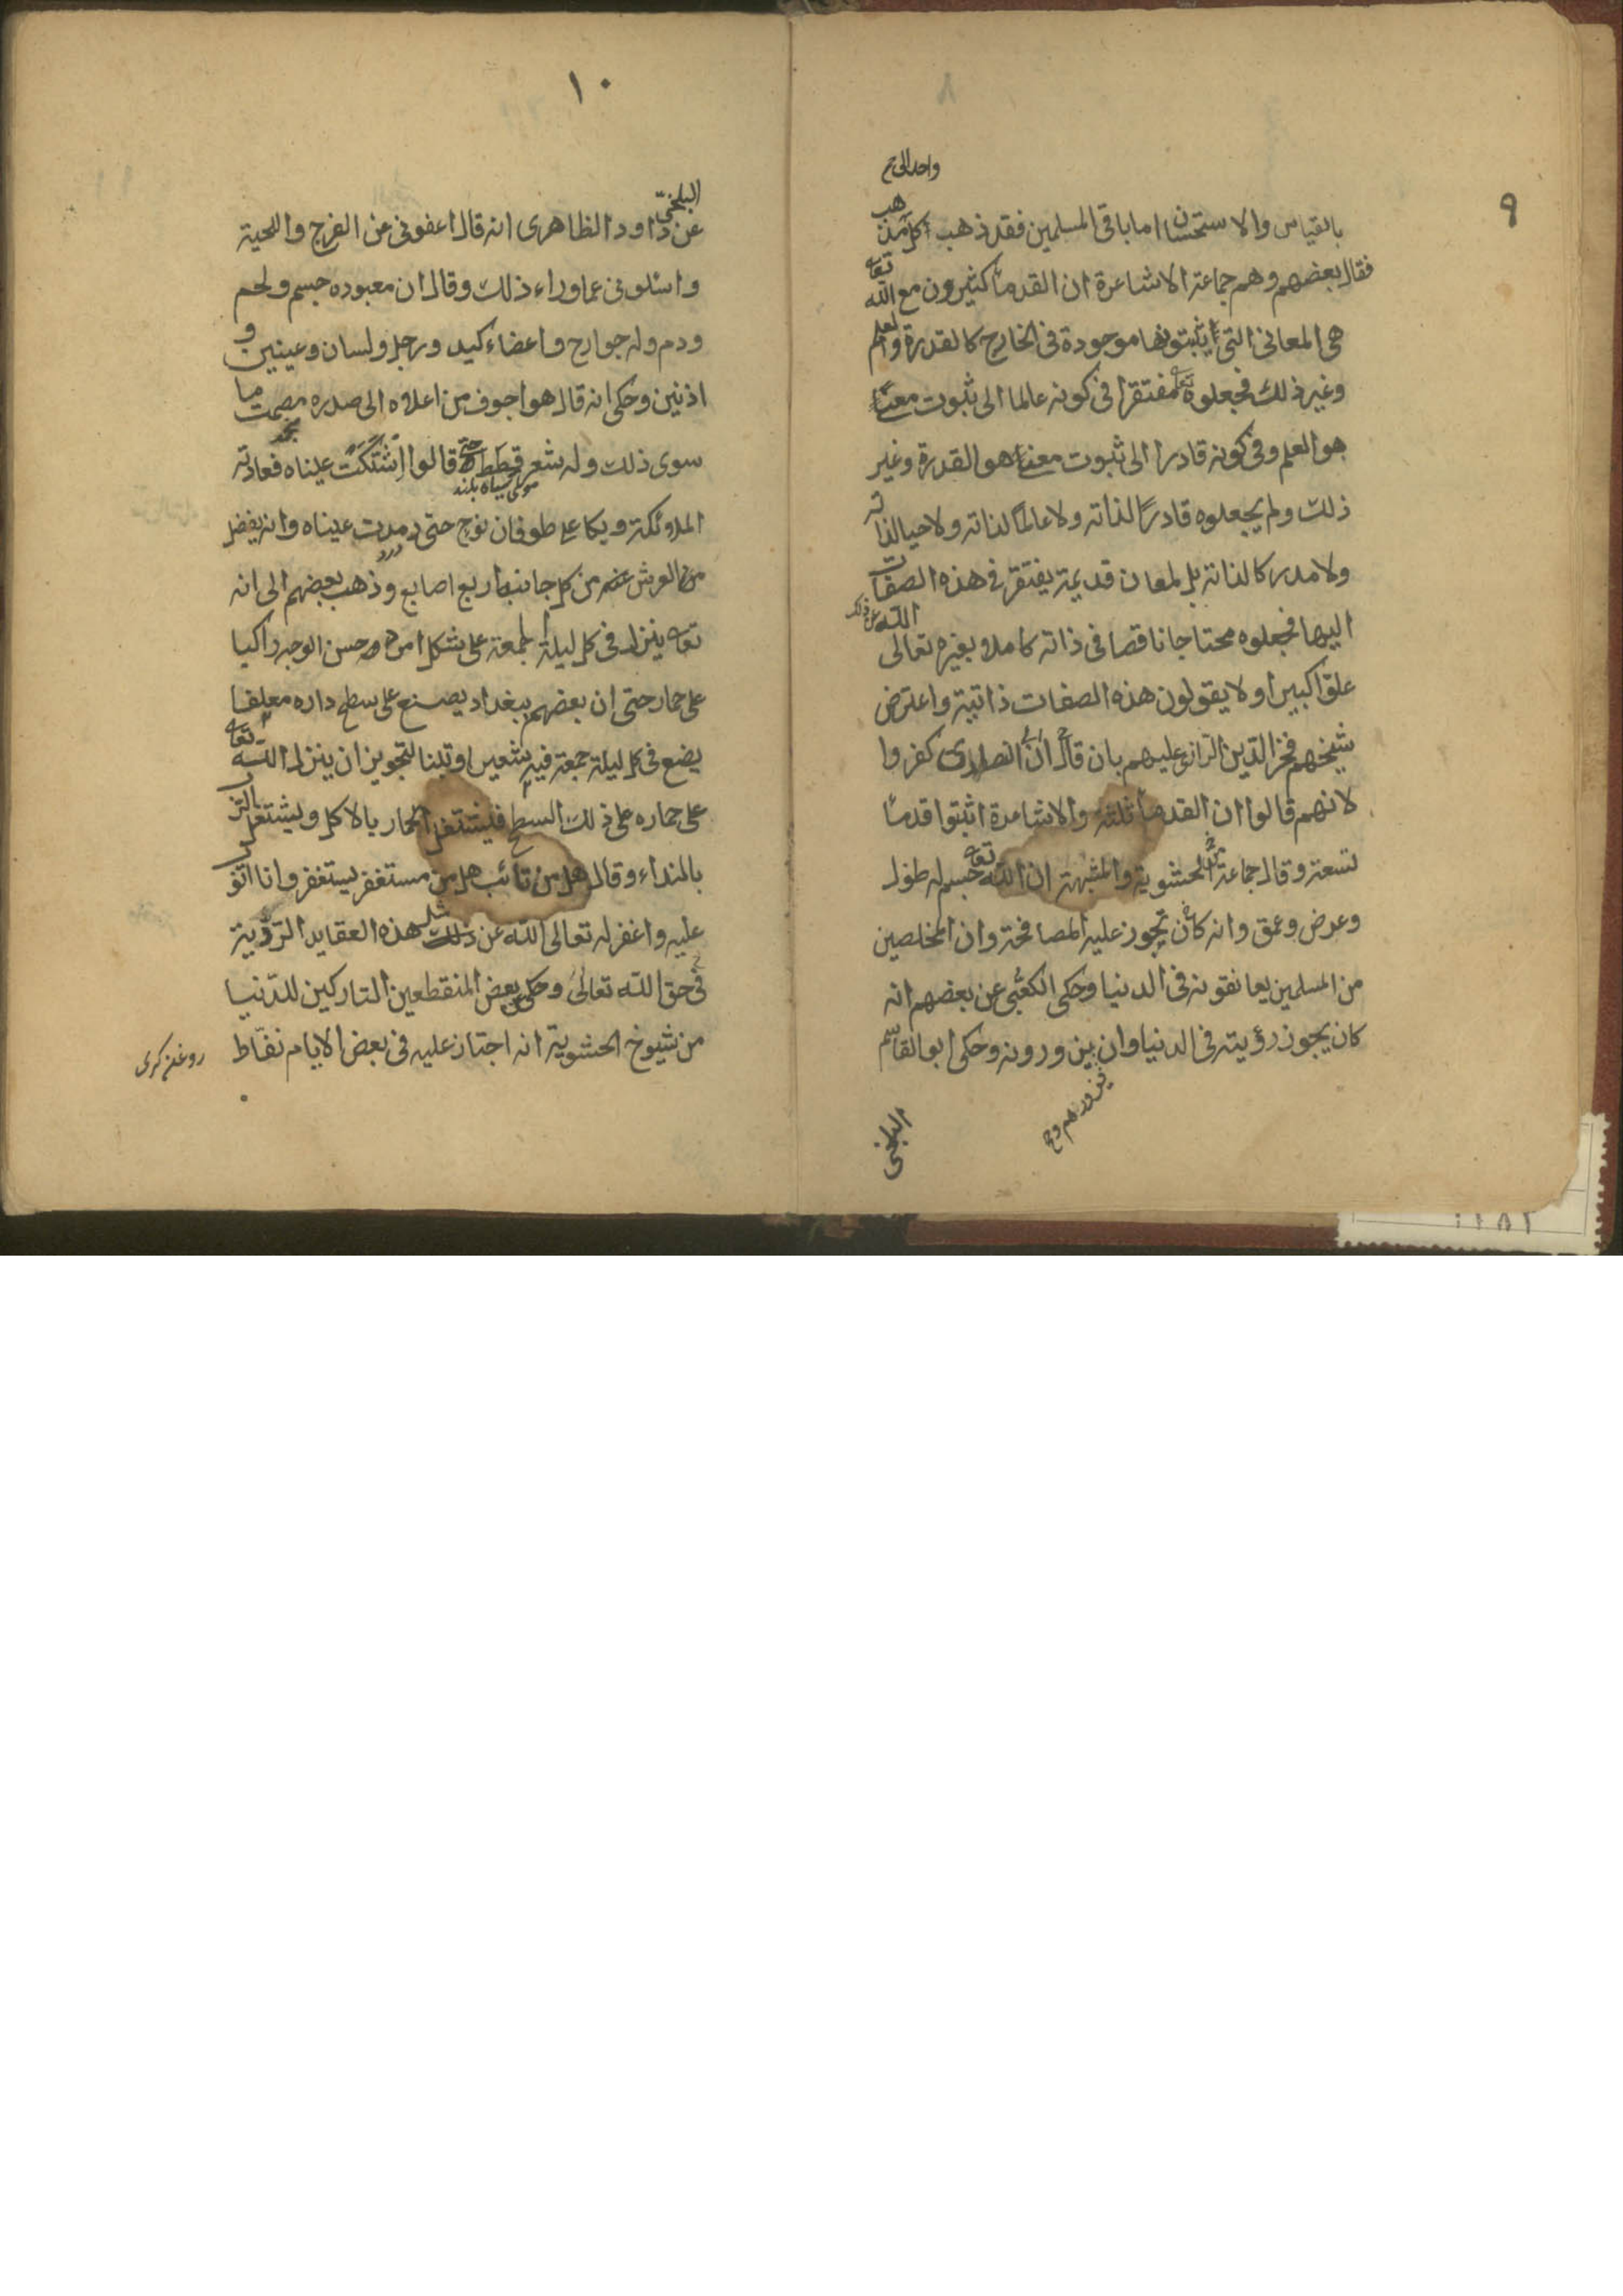 ٩
واحد الى م
بالقياس والاستحسان اما باقى المسلمين فقد ذهب كل مذهب
فقال بعضهم وهم جماعة الاشاعرة ان القدماء كثيرون مع الله تعا
هى المعانى التى اثبتوها موجودة فى الخارج كالقدرة والعلم
وغير ذلك فجعلوه تعا مفتقرا فى كونه عالما الى ثبوت معنىً
هو العلم وفى كونه قادرا الى ثبوت معنى هو القدرة وغير
ذلك ولم يجعلوه قادرًا لذاته ولا عالمًا لذاته ولا حيا لذاته
ولا مدركا لذاته بل لمعان قديمة يفتقر فى هذه الصفات
اليها فجعلوه محتاجا ناقصا فى ذاته كاملا بغيره تعالى الله عن ذلك
علوّا كبيرا ولا يقولون هذه الصفات ذاتية واعترض
شيخهم فخر الدّين الرازى عليهم بان قال انّ النصارى كفروا
لانهم قالوا ان القدماء ثلثة والاشاعرة اثبتوا قدماء
تسعة وقال جماعة الحشوية والمشبهة ان الله تعا جسم له طول
وعرض وعمق وانه كان يجوز عليه المصافحة وان المخلصين
من المسلمين يعانقونه فى الدنيا وحكى الكعبى عن بعضهم انه
كان يجوز رؤيته فى الدنيا وان يزورونه وحكى ابو القاسم
البلخى
١٠
البلخى
عن داود الظاهرى انه قال اعفونى عن الفرج واللحية
واسئلونى عما وراء ذلك وقال ان معبوده جسم ولحم
ودم وله جوارح واعضاء كيد ورجل ولسان وعينين و
اذنين وحكى انه قال هو اجوف من اعلاه الى صدره مصمت ما
سوى ذلك وله شعر قطط حتى قالوا اشتكت عيناه فعادته
موى سياه بلند
الملائكة وبكا على طوفان نوح حتى رمدت عيناه وانه يفضل
درد
من العرش عنه من كل جانب اربع اصابع وذهب بعضهم الى انه
تعا ينزل فى كل ليلة الجمعة على شكل امرد حسن الوجه راكبا
على حمار حتى ان بعضهم ببغداد يصنع على سطح داره معلفا
يضع فى كل ليلة جمعة فيه شعيرا وتبنا لتجويز ان ينزل الله تعا
على حماره على ذلك السطح فيشتغل الحمار بالاكل ويشتغل الرّب
بالنداء وقال هل من تائب هل من مستغفر يستغفر وانا اتوب
عليه واغفر له تعالى الله عن مثل هذه العقايد الرّدّية
فى حق الله تعالى وحكى بعض المنقطعين التاركين للدّنيا
من شيوخ الحشوية انه اجتاز عليه فى بعض الايام نفّاط
روغن كرى